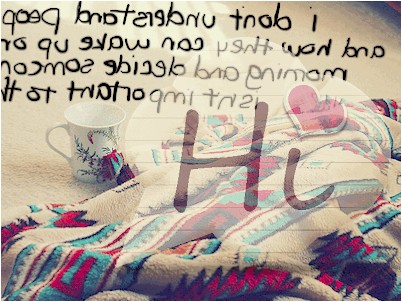 i dont understand peop
and how they can wake up on
morning and decide someon
isnt important to th
Hi